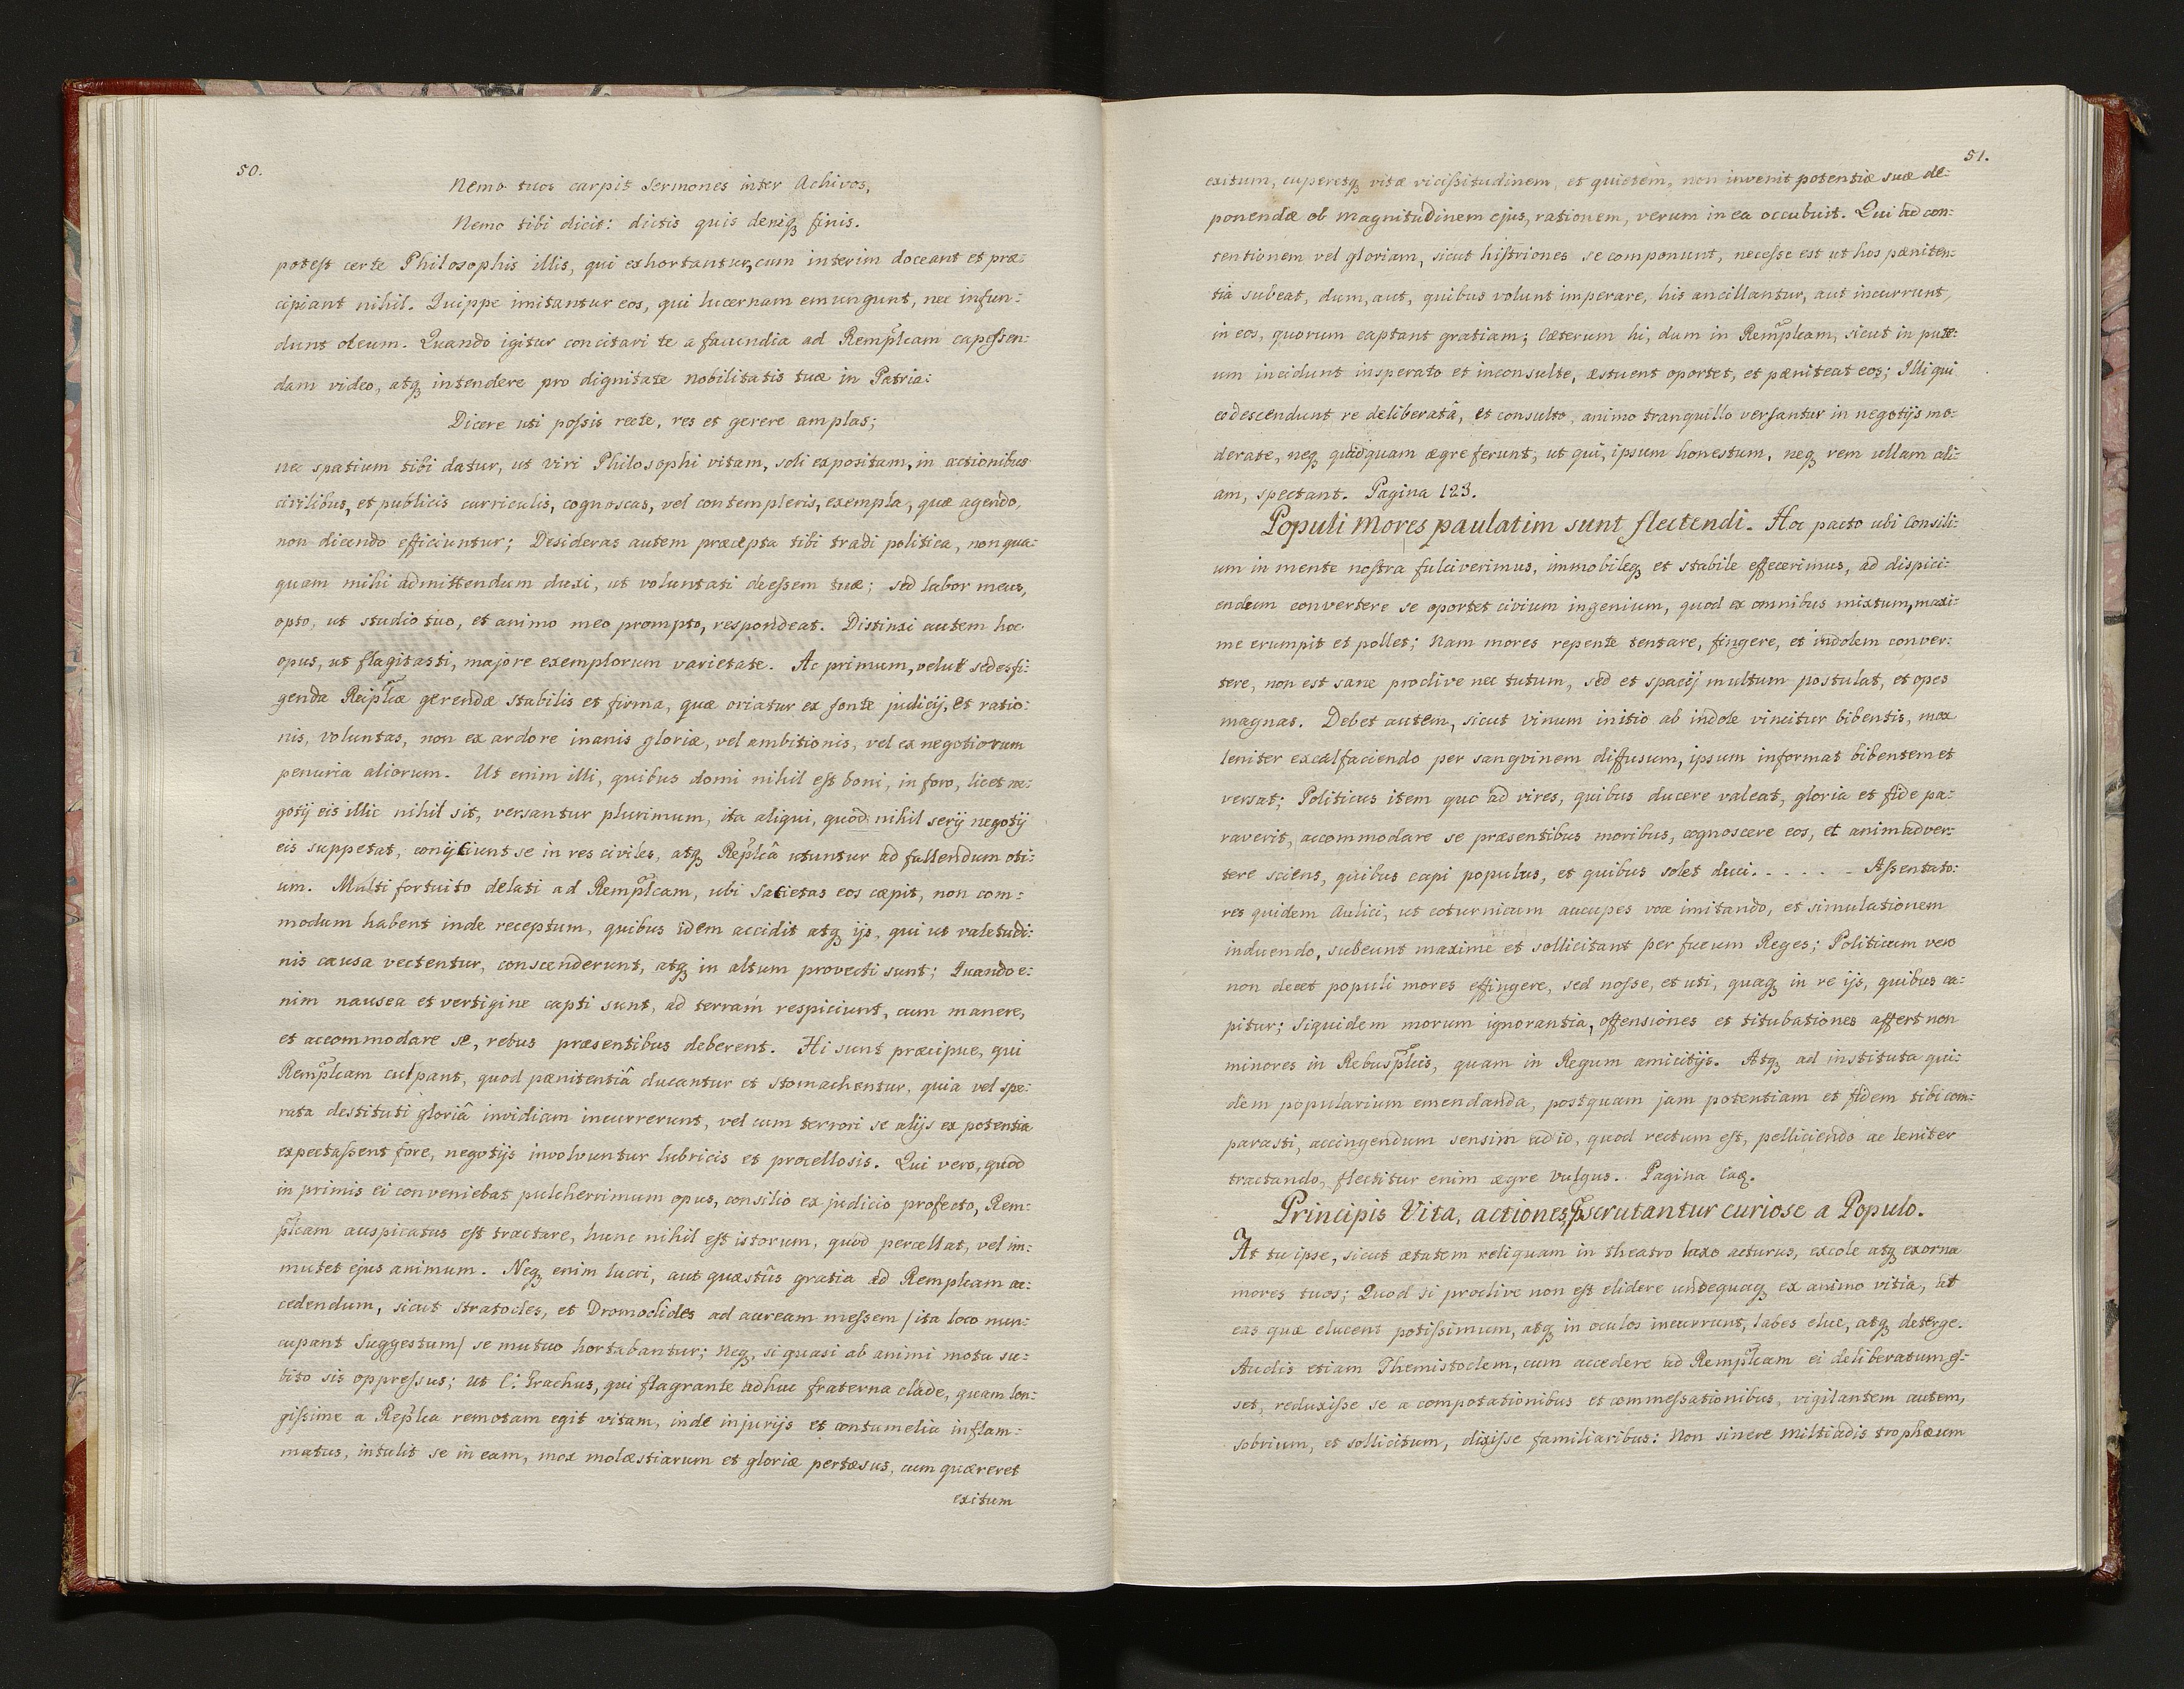 50.
Nemo tuos carpit Sermones inter Achivos,
Nemo tibi dicit: dictis quis deniq₃ finis.
potest certe Philosophis illis, qui exhortantur, cum interim doceant et præ:
cipiant nihil. Quippe imitantur eos, qui lucernam emungunt, nec infun:
dunt oleum. Quando igitur concitari te a facundia ad Remplcam capessen:
dam video, atq₃ intendere pro dignitate nobilitatis tuæ in Patria:
Dicere uti possis recte, res et gerere amplas;
nec spatium tibi datur, ut viri Philosophi vitam, soli expositam, in actionibus
civilibus, et publicis curriculis, cognoscas, vel contempleris, exempla, quæ agendo,
non dicendo efficiuntur; Desideras autem præcepta tibi tradi politica, non qua:
quam mihi admittendum duxi, ut voluntati deessem tuæ; sed labor meus,
opto, ut studio tuo, et animo meo prompto, respondeat. Distinxi autem hoc
opus, ut flagitasti, majore exemplorum varietate. Ac primum, velut sedes fi:
genda Reiplcæ gerendæ stabilis et firma, quæ oriatur ex fonte judicij, et ratio:
nis, voluntas, non ex ardore inanis gloriæ, vel ambitionis, vel ex negotiorum
penuria aliorum. Ut enim illi, quibus domi nihil est boni, in foro, licet ne:
gotij eis illic nihil sit, versantur plurimum, ita aliqui, quod nihil serij negotij
eis suppetat, conijciunt se in res civiles, atq₃ Replcâ utuntur ad fallendum oti:
um. Multi fortuito delati ad Remplcam, ubi Sacietas eos cæpit, non com:
modum habent inde receptum, quibus idem accidit atq₃ ijs, qui ut valetudi:
nis causa vectentur, conscenderunt, atq₃ in altum provecti sunt; Quando e:
nim nausea et vertigine capti sunt, ad terram respiciunt, cum manere,
et accommodare se, rebus præsentibus deberent. Hi sunt præcipue, qui
Remplcam culpant, quod pænitentiâ ducantur et stomachentur, quia vel spe:
rata destituti gloriâ invidiam incurrerunt, vel cum terrori se alijs ex potentia
expectassent fore, negotijs involvuntur lubricis et procellosis. Qui vero, quod
in primis ei conveniebat pulcherrimum opus, consilio ex judicio profecto, Rem:
plcam auspicatus est tractare, hunc nihil est istorum, quod percellat, vel im:
mutet ejus animum. Neq₃ enim lucri, aut quæstûs gratia ad Remplcam ac:
cedendum, sicut Stratocles, et Dromoclides ad auream messem / ita loco nun:
cupant Suggestum / se mutuo hortabantur; neq₃, si quasi ab animi motu su:
bito sis oppressus; ut C: Grachus, qui flagrante adhuc fraterna clade, quam lon:
gissime a Replca remotam egit vitam, inde injurijs et contumelia inflam:
matus, intulit se in eam, mox molæstiarum et gloriæ pertæsus, cum quæreret
exitum
51.
exitum, cuperetq₃ vitæ vicissitudinem, et quietem, non invenit potentiæ suæ de:
ponendæ ob magnitudinem ejus, rationem, verum in ea occubuit. Qui ad con:
tentionem vel gloriam, sicut histriones se componunt, necesse est ut hos pæniten:
tia subeat, dum, aut, quibus volunt imperare, his ancillantur, aut incurrunt,
in eos, quorum captant gratiam; Cæterum hi, dum in Remplcam, sicut in pute:
um incidunt insperato et inconsulte, æstuent oportet, et pæniteat eos; Illi qui
eo descendunt re deliberatâ, et consulto, animo tranquillo versantur in negotijs mo:
derate, neq₃ quidquam ægre ferunt, ut qui, ipsum honestum, neq₃ rem ullam ali:
am, spectant. Pagina 123.
Populi Mores paulatim sunt flectendi. Hoc pacto ubi consili:
um in mente nostra fulciverimus, immobileq₃ et stabile effecerimus, ad dispici:
endum convertere se oportet civium ingenium, quod ex omnibus mixtum, maxi:
me erumpit et pollet; Nam mores repente tentare, fingere, et indolem conver:
tere, non est sane proclive nec tutum, sed et spacij multum postulat, et opes
magnas. Debet autem, sicut vinum initio ab indole vincitur bibentis, mox
leniter excalfaciendo per sangvinem diffusum, ipsum informat bibentem et
versat; Politicus item quo ad vires, quibus ducere valeat, gloria et fide pa:
raverit, accommodare se præsentibus moribus, cognoscere eos, et animadver:
tere sciens, quibus capi populus, et quibus solet duci. - - - - - - Assentato:
res quidem Aulici, ut coturnicum aucupes voce imitando, et simulationem
induendo, subeunt maxime et sollicitant per fucum Reges; Politicum vero
non decet populi mores effingere, sed nosse, et uti, quaq₃ in re ijs, quibus ca:
pitur; Siquidem morum ignorantia, offensiones et titubationes affert non
minores in Rebusplcis, quam in Regum amicitijs. Atq₃ ad instituta qui:
dem popularium emendanda, postquam jam potentiam et fidem tibi com:
parasti, accingendum sensim ad id, quod rectum est, pelliciendo ac leniter
tractando, flectitur enim ægre vulgus. Pagina Eaq₃.
Principis Vita, actiones, pscrutantur curiose a Populo.
At tu ipse, sicut ætatem reliquam in theatro laxo acturus, excole atq₃ exorna
mores tuos; Quod si proclive non est elidere undequaq₃ ex animo vitia, at
eas quæ elucent potissimum, atq₃ in oculos incurrunt, labes elue, atq₃ deterge.
Audis etiam Themistoclem, cum accedere ad Remplcam ei deliberatum es:
set, reduxisse se a compotationibus et commessationibus, vigilantem autem,
sobrium, et sollicitum, dixisse familiaribus: Non sinere Miltiadis trophæum